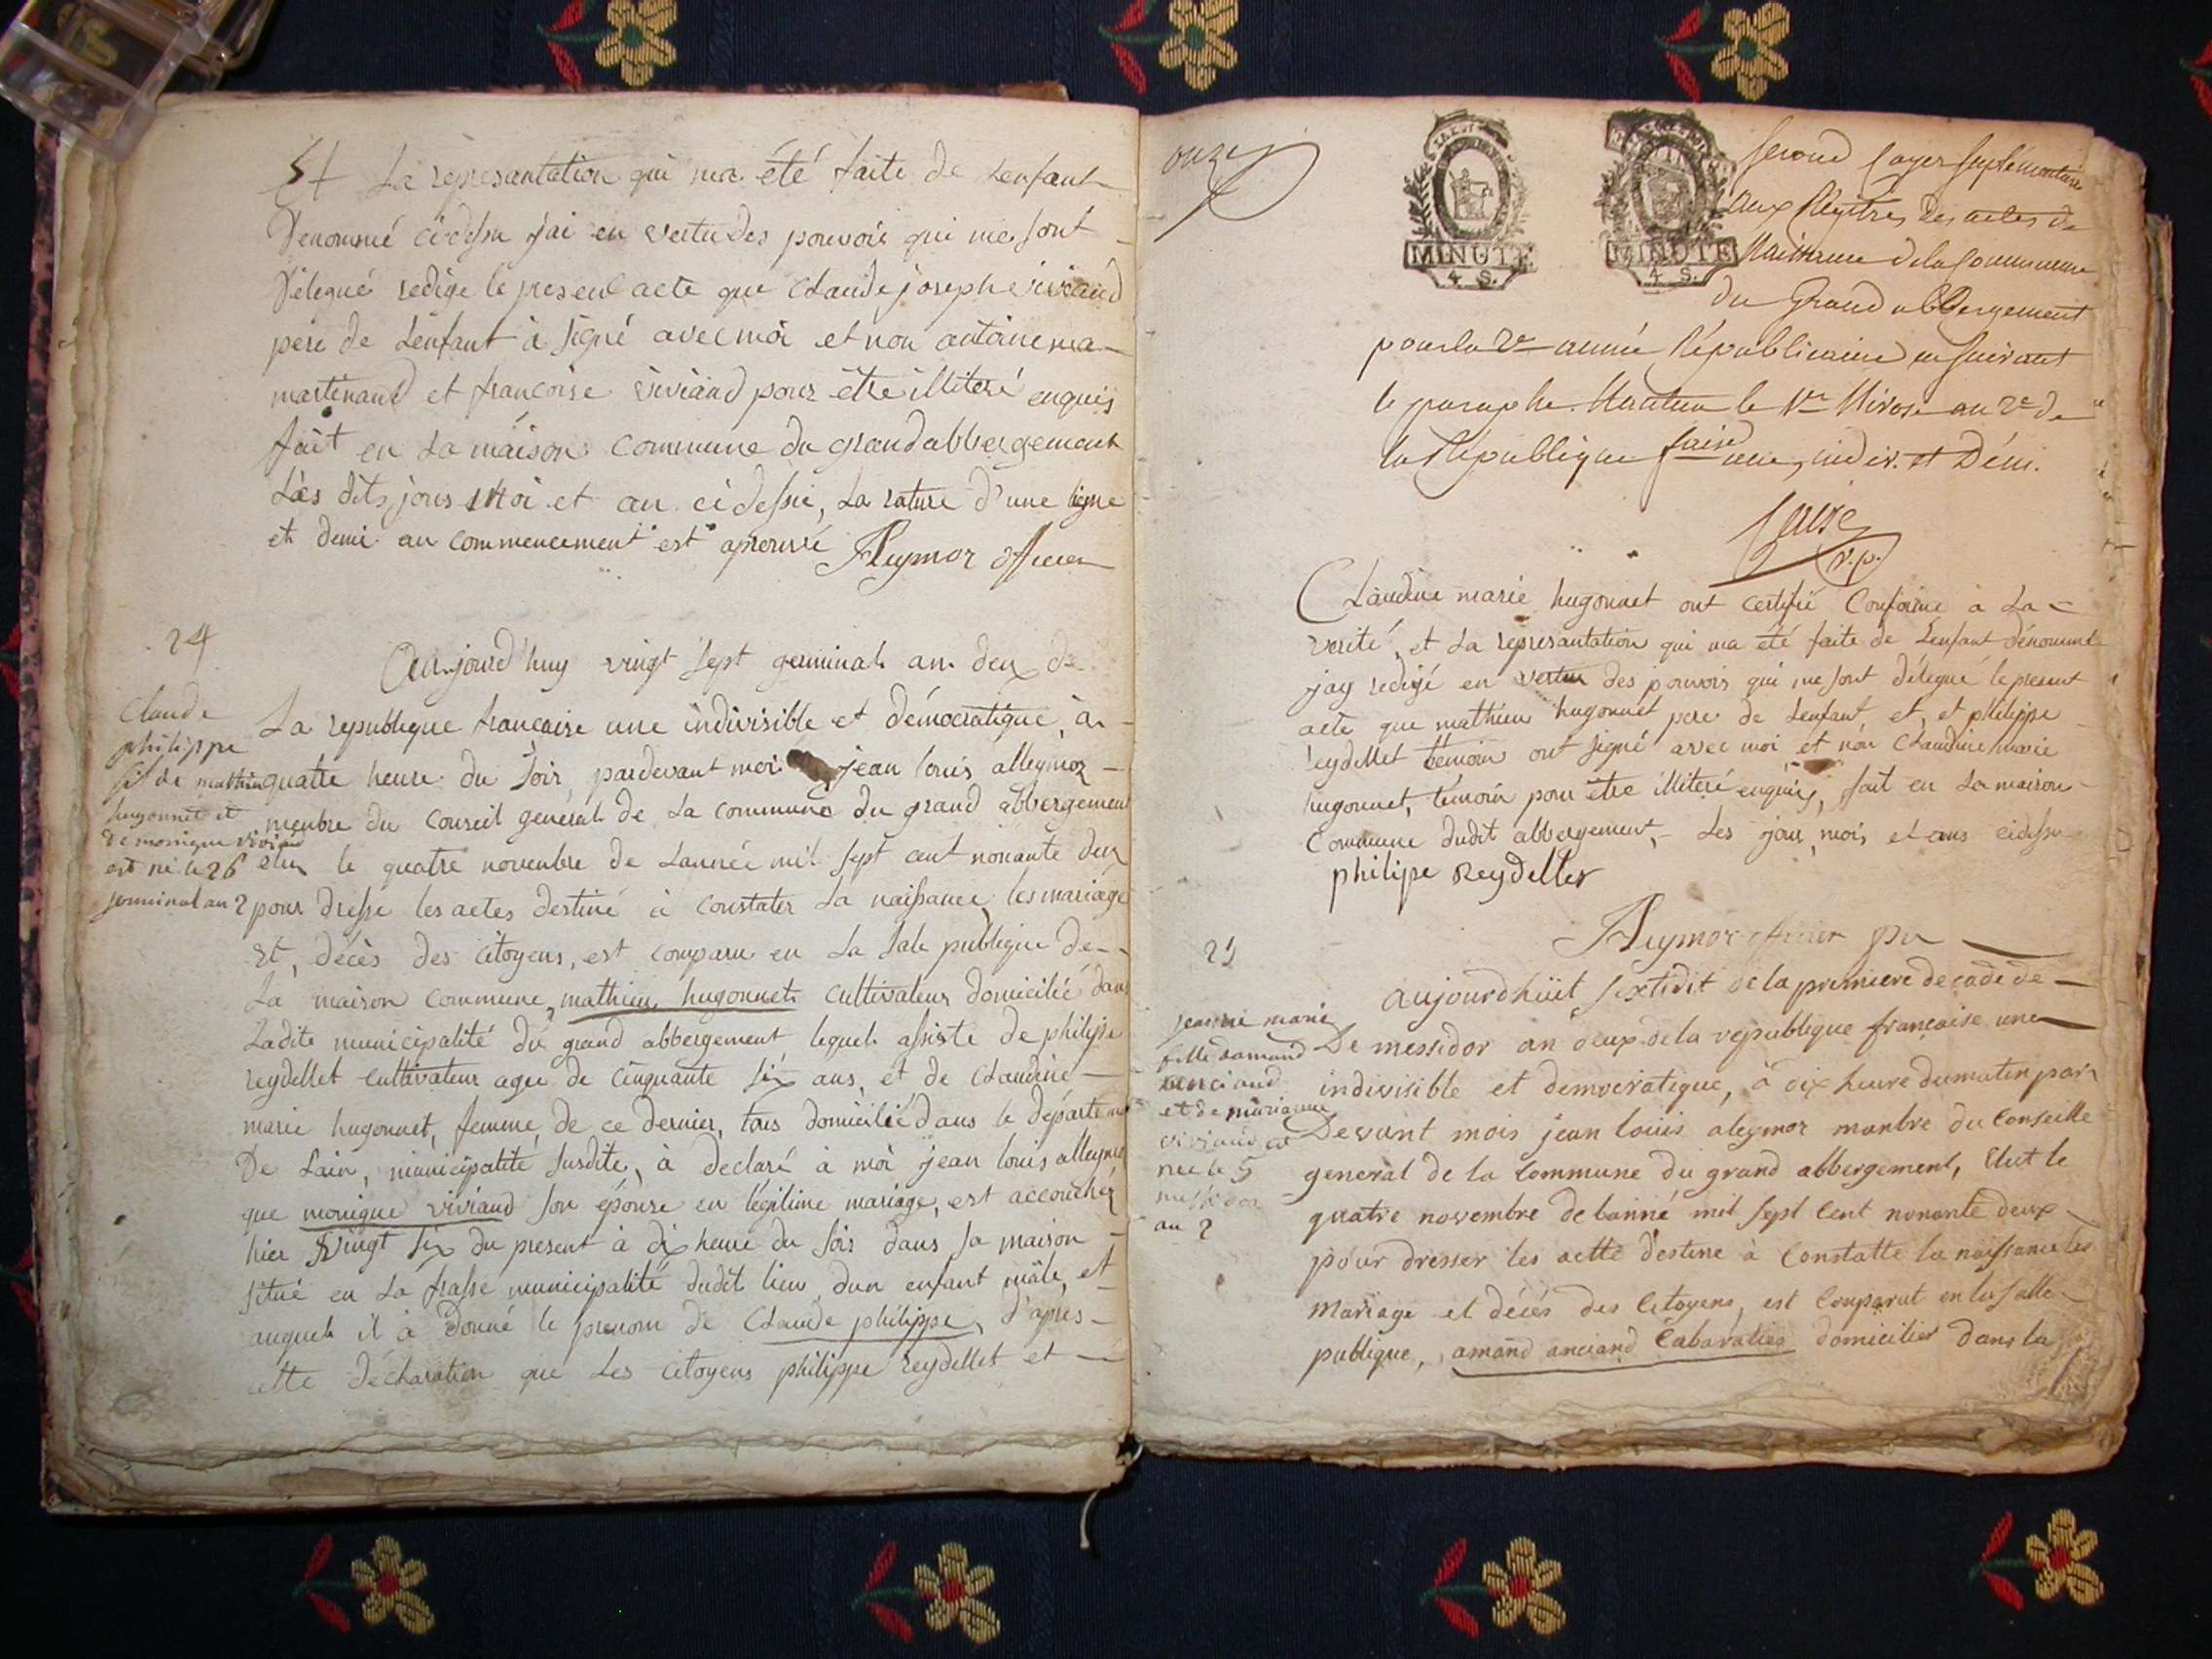 Et La represantation qui ma été faite de Lenfant
Denommé cidessu jai en vertu des pouvoir qui me sont
Délegué redige le presenc acte que Claude joseph viviand
pere de Lenfant a signé avec moi et non antoine ma-
martinand et francoise viviand pour être illiteré enquis
fait en La maison Commune du grand abbergement
Les dits jours moi et an ci dessu, La rature d'une ligne
et demi au commencement est aprouvé
Alleymoz officier
24
Claude
philippe
fil de mathieu
hugonnet et
de monique viviand
est né le 26
germinal an 2
Aujourd'huy vingt sept germinal an deux de
La republique francaise une indivisible et démocratique, à
quatre heure du soir, pardevant moi jean louis alleymoz
menbre du Conseil general de La commune du grand abbergement
elu le quatre novenbre de Lannée mil sept cent nonante deux
pour dresse les actes destiné à constater La naissance, les mariage
Et, décès des citoyens, est comparu en La sale publique de
La maison commune, mathieu hugonnet cultivateur domicilié dans
Ladite municipalité du grand abbergement lequel assisté de philipe
reydellet cultivateur agee de cinquante six ans, et de Claudine
marie hugonnet, femme de ce dernier, tous domicilié dans le département
De Lain, municipalité susdite, à declaré à moi jean louis alleymoz
que monique viviand son épouse en légitime mariage, est accouchez
hier vingt six du present à dix heure du soir dans sa maison
situé en La frasse municipalité dudit lieu dun enfant mâle, et
auquel il à donné le prenom de Claude philippe, d'apres
cette déclaration que Les citoyens philippe reydellet et
onze
MINUTE
4 S.
MINUTE
4 S.
Second Cayer suplémentaire
aux Registres des actes de
Naissance de la Commune
du Grand abbergement
pour la 2e année Républicaine en suivant
le paraphe. Nantua le 1er Nivose an 2e de
la République française une, indiv. et Dém.
v.p.
Claudine marie hugonnet ont certifié Conforme à La
verité, et La represantation qui ma été faite de Lenfant dénommé
jay redigé en vertu des pouvoirs qui me sont délegué le present
acte que mathieu hugonnet pere de Lenfant, et, et philippe
reydellet témoin ont signé avec moi et non Claudine marie
hugonnet, témoin pour être illiteré enquis, fait en La maison
Commune dudit abbergement, Les jour, mois, et ans cidessu
philipe Reydellet
Alleymoz officier pu
25
jeanne marie
fille damand
anciand
et de marianne
viviand et
nee le 5
messidor
an 2
aujourdhüit sextidit de la premiere decade de
De messidor an deux de la republique francaise une
indivisible et democratique, à dix heure du matin par
Devant mois jean louis aleymoz manbre du Conseille
general de la Commune du grand abbergement, Elut le
quatre novembre de lanné mil sept Cent nonante deux
pour dresser les actte destine à Constatte la naissance les
mariage et décés des Citoyens, est Comparut en la salle
publique, amand anciand Cabaratier domicilier dans la